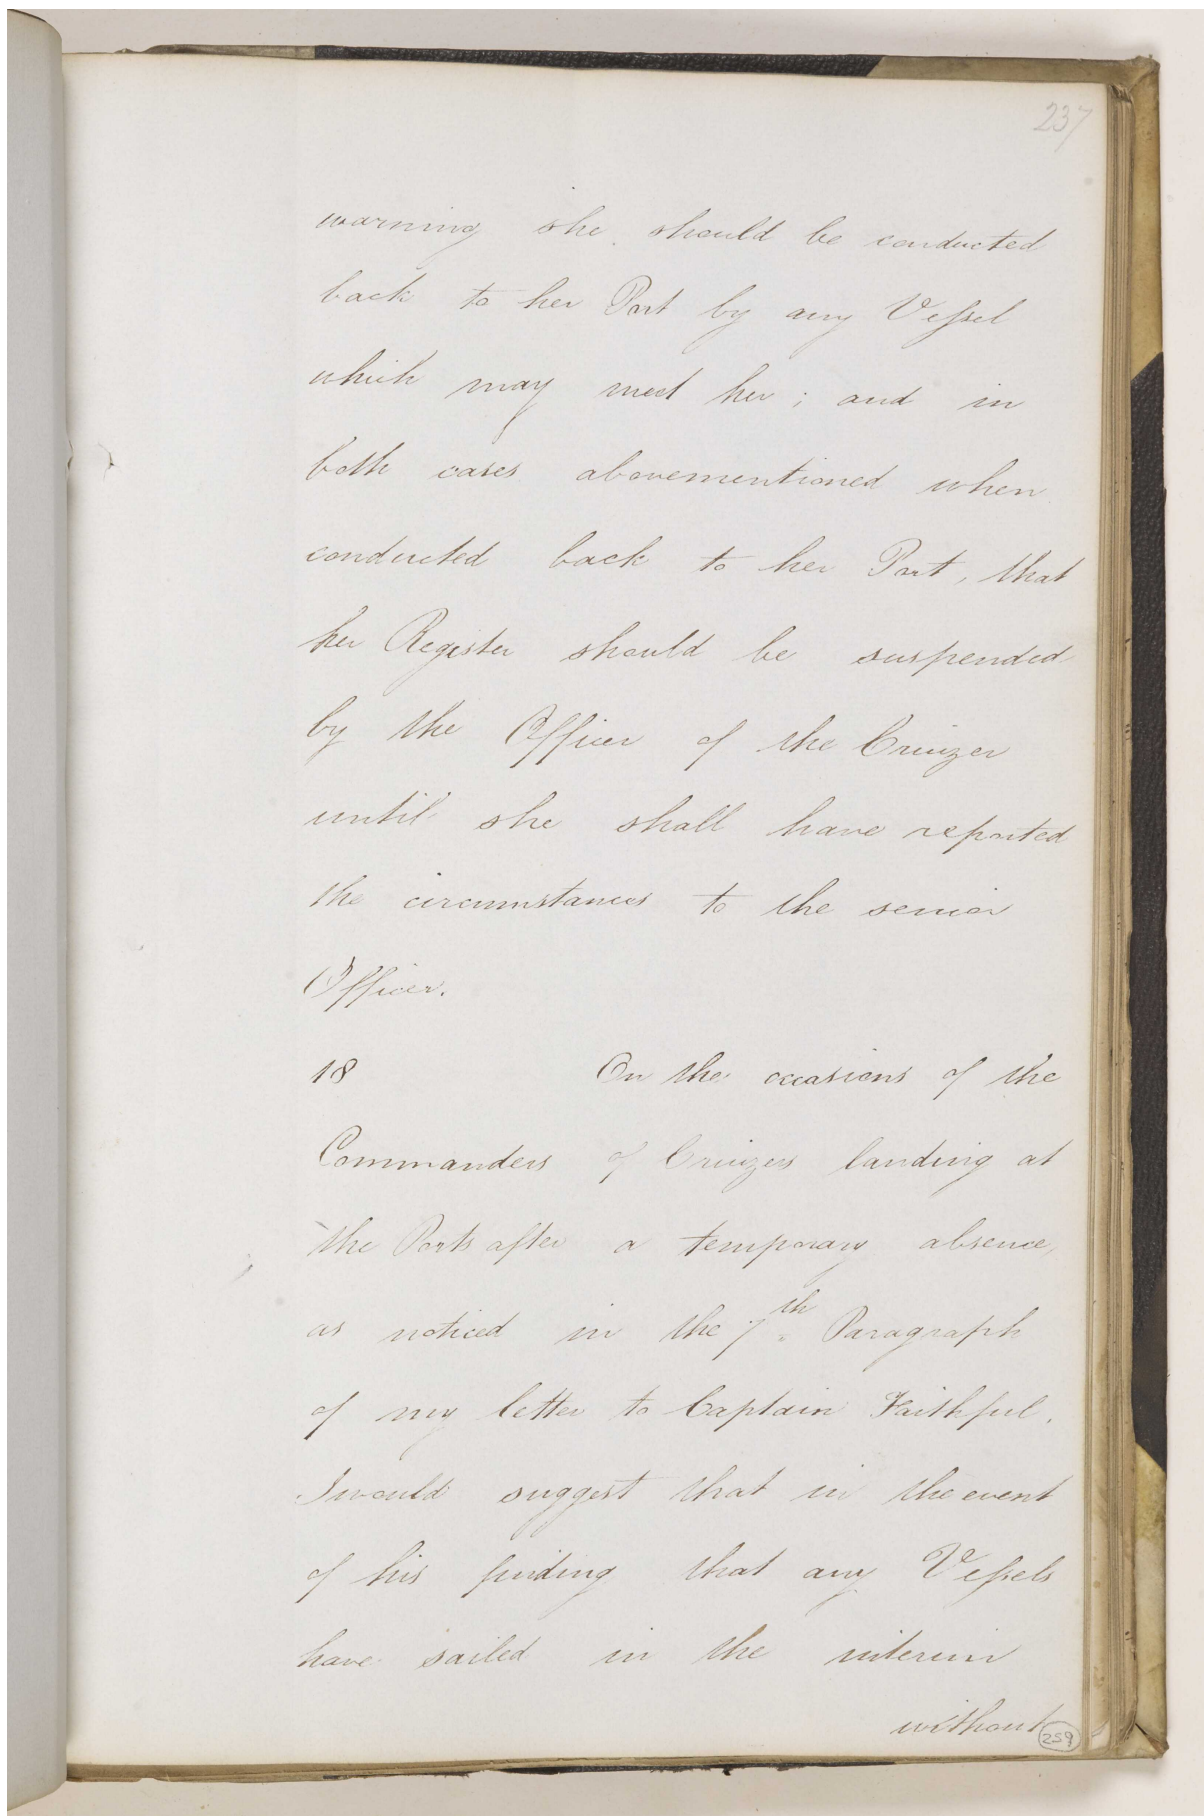 237
warning she should be conducted
back to her Port by any Vessel
which may meet her; and in
both cases abovementioned when
conducted back to her Port, that
her Register should be suspended
by the Officer of the Cruizer
until she shall have reported
the circumstances to the senior
Officer.
18 On the occasions of the
Commanders of Cruizers landing at
the Ports after a temporary absence,
as noticed in the 7th Paragraph
of my letter to Captain Faithful.
I would suggest that in the event
of his finding that any Vessels
have sailed in the interim
without
259